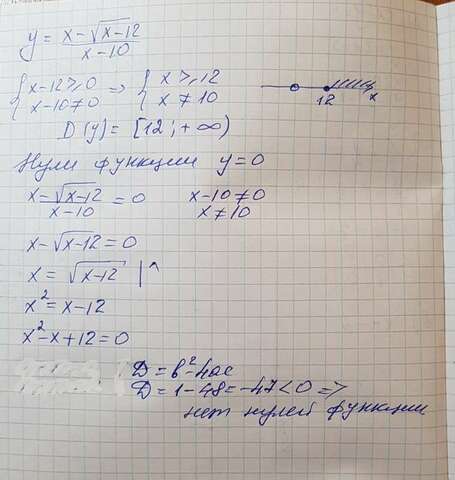 y = (x - √(x-12))/(x-10)
{ x-12 ≥ 0 => { x ≥ 12
{ x-10 ≠ 0 { x ≠ 10
12 x
D(y) = [12; +∞)
Нули функции y=0
(x-√(x-12))/(x-10) = 0 x-10 ≠ 0
x ≠ 10
x - √(x-12) = 0
x = √(x-12) |^
x² = x-12
x² - x + 12 = 0
D = b² - 4ac
D = 1-48 = -47 < 0 =>
нет нулей функции